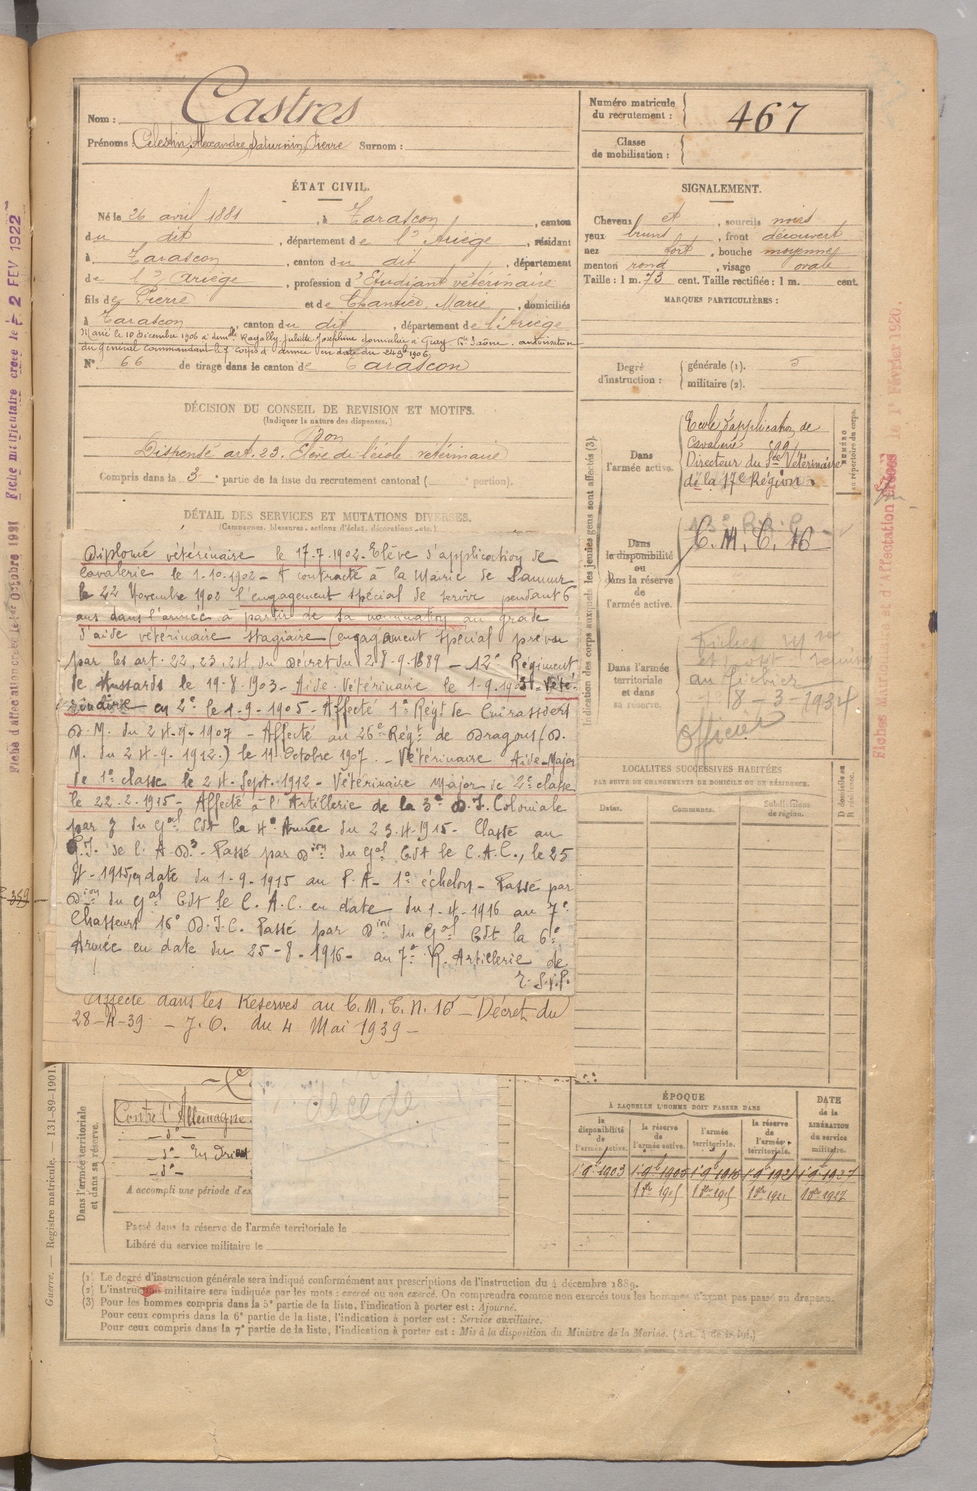 Nom : Castres
Prénoms : Célestin, Alexandre, Saturnin, Pierre Surnom :
Numéro matricule du recrutement : 467
Classe de mobilisation :
ÉTAT CIVIL.
Né le 26 avril 1881, à Tarascon, canton
du dit, département de l'Ariège, résidant
à Tarascon, canton du dit, département
de l'Ariège, profession d'Etudiant vétérinaire
fils de Pierre et de Chantiée, Marie, domiciliés
à Tarascon, canton du dit, département de l'Ariège
Marié le 10 décembre 1906 à demelle Juliette Joséphine domiciliée à Gray Hte Saône. autorisation
du général commandant le 7e corps d'armée en date du 1906
N° 66 de tirage dans le canton de Tarascon
SIGNALEMENT.
Cheveux et, sourcils noirs
yeux bruns, front découvert
nez fort, bouche moyenne
menton rond, visage ovale
Taille : 1 m. 73 cent. Taille rectifiée : 1 m. cent.
MARQUES PARTICULIÈRES :
Degré d'instruction : générale (1). 5
militaire (2).
DÉCISION DU CONSEIL DE REVISION ET MOTIFS.
(Indiquer la nature des dispenses.)
Bon
Dispensé art. 23. Elève de l'école vétérinaire
Compris dans la 3e partie de la liste du recrutement cantonal ( e portion).
DÉTAIL DES SERVICES ET MUTATIONS DIVERSES.
(Campagnes, blessures, actions d'éclat, décorations, etc.)
Diplomé vétérinaire le 17.7.1902. Elève d'application de
Cavalerie le 1.10.1902 - A contracté à la Mairie de Saumur
le 22 Novembre 1902 l'engagement spécial de servir pendant 6
ans dans l'armée à partir de sa nomination au grade
d'aide vétérinaire stagiaire (engagement spécial prévu
par les art. 22, 23, 24, du Décret du 28-9-1889 - 12e Régiment
de Hussards le 19-8-1903 - Aide-Vétérinaire le 1-9-1903 - Vété-
rinaire en 2e le 1-9-1905 - Affecté 1er Régt de Cuirassiers
D.M. du 24-9-1907 - Affecté au 26e Régt de Dragons (D.
M. du 24-9-1912.) le 11 Octobre 1907. - Vétérinaire Aide-Major
de 1e classe le 24-Sept-1912 - Vétérinaire Major de 2e classe
le 22-2-1915 - Affecté à l'Artillerie de la 3e D.I. Coloniale
par du Gal Cdt la 4e Armée du 23-4-1915 - Classé au
de l'A.D3. Passé par Dion du Gal Cdt le C.A.C., le 25
1915, en date du 1-9-1915 au P.A. 1er échelon - Passé par
Dion du Gal Cdt le C.A.C. en date du 1-4-1916 au 7e
Chasseurs 16e D.I.C. Passé par Dion du Gal Cdt la 6e
Armée en date du 25-8-1916 - au 7e R. Artillerie de
T.S.V.P.
Affecté dans les Réserves au C.M.C.N. 16 - Décret du
28-4-39 - J.O. du 4 Mai 1939 -
Contre l'Allemagne
- d° -
- d° - En Orient
- d° -
décédé
A accompli une période d'ex
Dans l'armée territoriale et dans sa réserve.
Passé dans la réserve de l'armée territoriale le
Libéré du service militaire le
Indication des corps auxquels les jeunes gens sont affectés (3).
NUMÉRO au répertoire du corps.
Dans l'armée active.
Ecole d'application de
Cavalerie
Directeur du Sce Vétérinaire
de la 17e Région
Dans la disponibilité ou dans la réserve de l'armée active.
C.M.C. 16
Dans l'armée territoriale et dans sa réserve.
au fichier
18-3-1934
Officier
LOCALITÉS SUCCESSIVES HABITÉES
PAR SUITE DE CHANGEMENTS DE DOMICILE OU DE RÉSIDENCE.
Dates. Communes. Subdivisions de région. D domicile ou R résidence.
ÉPOQUE
À LAQUELLE L'HOMME DOIT PASSER DANS
la disponibilité de l'armée active. la réserve de l'armée active. l'armée territoriale. la réserve de l'armée territoriale. DATE de la LIBÉRATION du service militaire.
1 9bre 1903 1 9bre 1905 1 9bre 1915 1 9bre 1921 1 9bre 1927
(1) Le degré d'instruction générale sera indiqué conformément aux prescriptions de l'instruction du 4 décembre 1889.
(2) L'instruction militaire sera indiquée par les mots : exercé ou non exercé. On comprendra comme non exercés tous les hommes n'ayant pas passé au drapeau.
(3) Pour les hommes compris dans la 5e partie de la liste, l'indication à porter est : Ajourné.
Pour ceux compris dans la 6e partie de la liste, l'indication à porter est : Service auxiliaire.
Pour ceux compris dans la 7e partie de la liste, l'indication à porter est : Mis à la disposition du Ministre de la Marine. (Art. 4 de la loi.)
Guerre. — Registre matricule. — 131-89-1901.
Fiche matriculaire créée le 2 FEV 1922